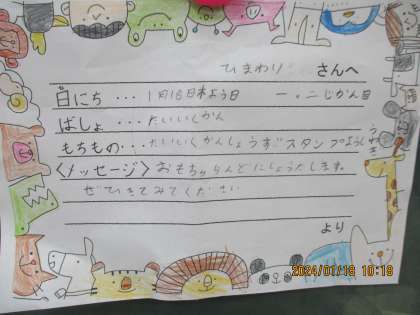 ひまわり さんへ
日にち・・・1月18日木よう日 一・二じかん目
ばしょ・・・たいいくかん
もちもの・・・たいいくかんしょうず スタンプようし
うわぎ
〈メッセージ〉おもちゃらんどにしょうたいします。
ぜひきてみてください
より
2024/01/18 10:18